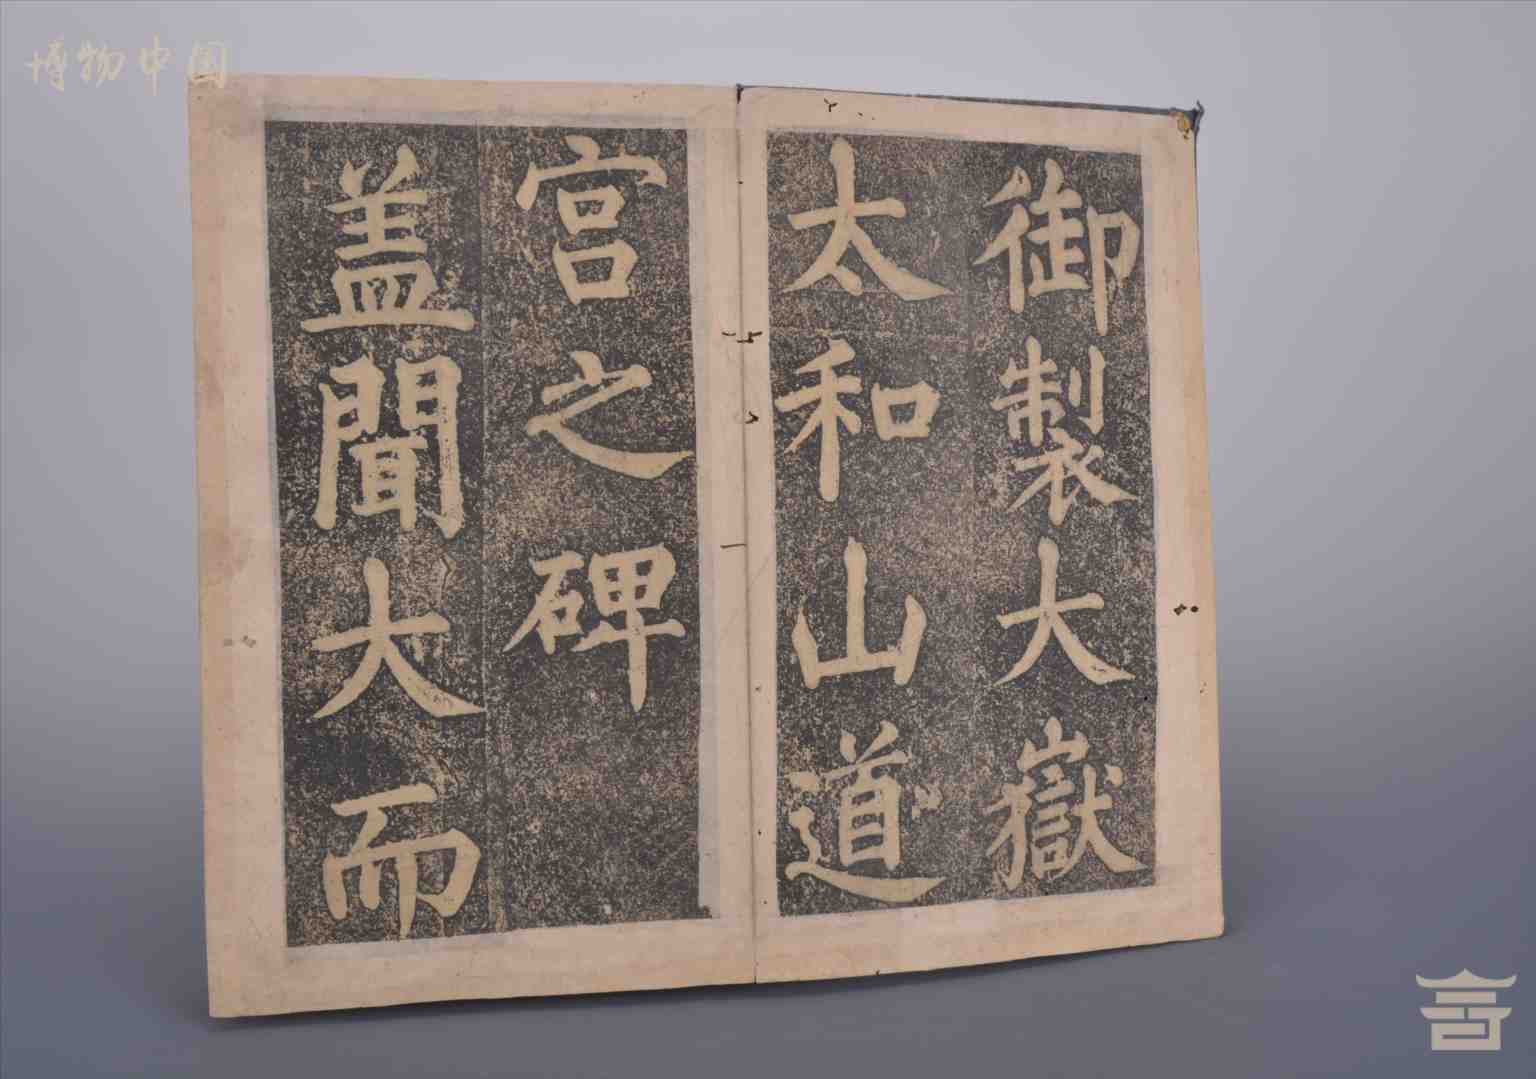 博物中国
御製大嶽
太和山道
宮之碑
盖聞大而